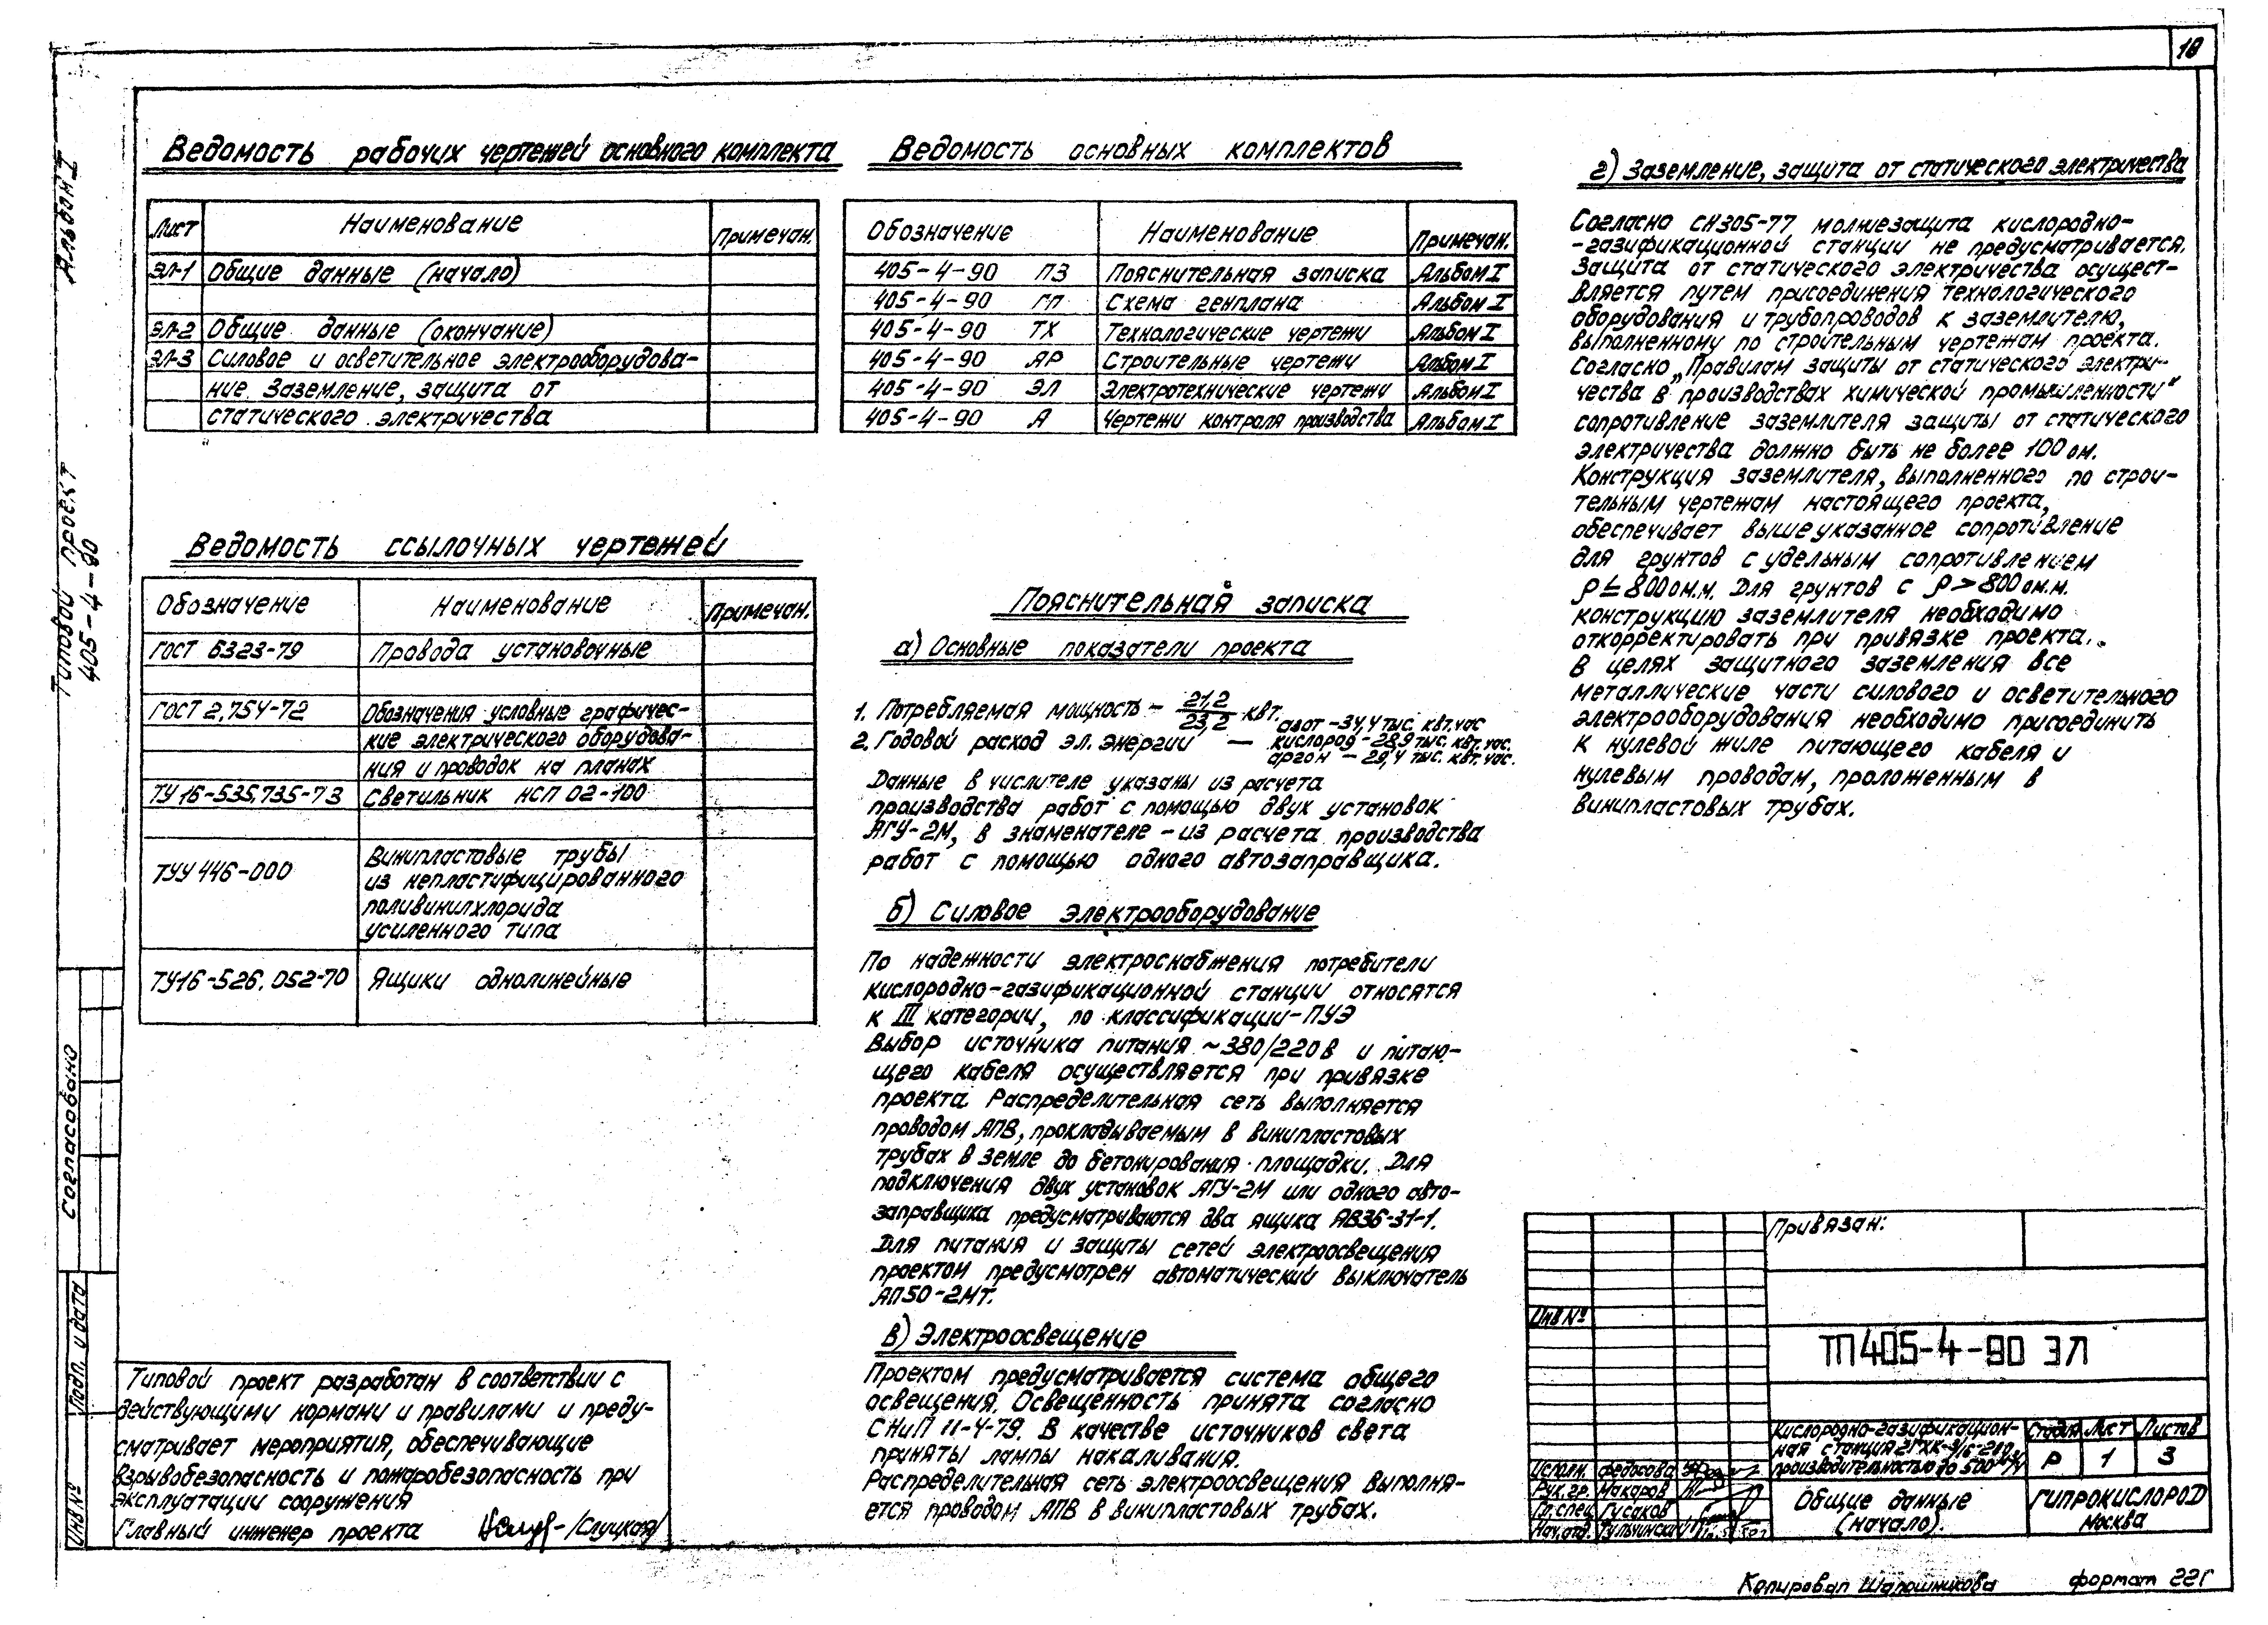 18
Альбом I
Типовой проект
405-4-90
Согласовано
Подп. и дата
Инв №
Ведомость рабочих чертежей основного комплекта
Лист Наименование Примечан.
ЭЛ-1 Общие данные (начало)
ЭЛ-2 Общие данные (окончание)
ЭЛ-3 Силовое и осветительное электрооборудова-
ние. Заземление, защита от
статического электричества
Ведомость основных комплектов
Обозначение Наименование Примечан.
405-4-90 ПЗ Пояснительная записка Альбом I
405-4-90 ГП Схема генплана Альбом I
405-4-90 ТХ Технологические чертежи Альбом I
405-4-90 АР Строительные чертежи Альбом I
405-4-90 ЭЛ Электротехнические чертежи Альбом I
405-4-90 А Чертежи контроля производства Альбом I
Ведомость ссылочных чертежей
Обозначение Наименование Примечан.
ГОСТ 6323-79 Провода установочные
ГОСТ 2.754-72 Обозначения условные графичес-
кие электрического оборудова-
ния и проводок на планах
ТУ 16-535.735-73 Светильник НСП 02-100
ТУУ 446-000 Винипластовые трубы
из непластифицированного
поливинилхлорида
усиленного типа
ТУ16-526.052-70 Ящики однолинейные
Типовой проект разработан в соответствии с
действующими нормами и правилами и преду-
сматривает мероприятия, обеспечивающие
взрывобезопасность и пожаробезопасность при
эксплуатации сооружения
Главный инженер проекта /Слуцкая/
Пояснительная записка
а) Основные показатели проекта
1. Потребляемая мощность – 21,2/23,2 квт.
азот – 34,4 тыс. квт. час
2. Годовой расход эл. энергии — кислород – 28,9 тыс. квт. час.
аргон – 29,4 тыс. квт. час.
Данные в числителе указаны из расчета
производства работ с помощью двух установок
АГУ-2М, в знаменателе – из расчета производства
работ с помощью одного автозаправщика.
б) Силовое электрооборудование
По надежности электроснабжения потребители
кислородно-газификационной станции относятся
к III категории, по классификации – ПУЭ
Выбор источника питания ~380/220в и питаю-
щего кабеля осуществляется при привязке
проекта. Распределительная сеть выполняется
проводом АПВ, прокладываемым в винипластовых
трубах в земле до бетонирования площадки. Для
подключения двух установок АГУ-2М или одного авто-
заправщика предусматриваются два ящика ЯВ36-31-1.
Для питания и защиты сетей электроосвещения
проектом предусмотрен автоматический выключатель
АП50-2МТ.
в) Электроосвещение
Проектом предусматривается система общего
освещения. Освещенность принята согласно
СНиП II-4-79. В качестве источников света
приняты лампы накаливания.
Распределительная сеть электроосвещения выполня-
ется проводом АПВ в винипластовых трубах.
г) Заземление, защита от статического электричества
Согласно СН305-77 молниезащита кислородно-
-газификационной станции не предусматривается.
Защита от статического электричества осущест-
вляется путем присоединения технологического
оборудования и трубопроводов к заземлителю,
выполненному по строительным чертежам проекта.
Согласно „Правилам защиты от статического электри-
чества в производствах химической промышленности"
сопротивление заземлителя защиты от статического
электричества должно быть не более 100 ом.
Конструкция заземлителя, выполненного по строи-
тельным чертежам настоящего проекта,
обеспечивает вышеуказанное сопротивление
для грунтов с удельным сопротивлением
ρ ≤ 800 ом.м. Для грунтов с ρ > 800 ом.м.
конструкцию заземлителя необходимо
откорректировать при привязке проекта.
В целях защитного заземления все
металлические части силового и осветительного
электрооборудования необходимо присоединить
к нулевой жиле питающего кабеля и
нулевым проводам, проложенным в
винипластовых трубах.
Привязан:
Инв №
ТП405-4-90 ЭЛ
Кислородно-газификацион-
ная станция
производительностью до 500
Стадия Лист Листов
Р 1 3
Исполн. Федосова
Рук. гр. Макаров
Гл. спец. Гусаков
Нач. отд.
Общие данные
(начало).
ГИПРОКИСЛОРОД
Москва
Копировал Шапошникова формат 22Г